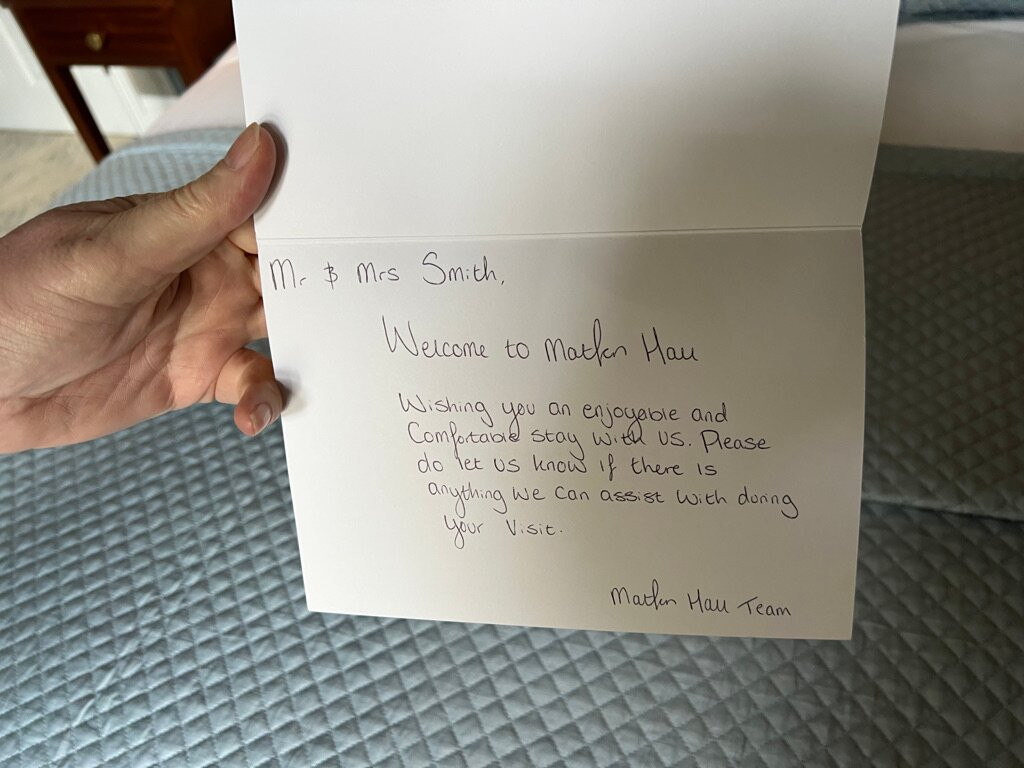 Mr & Mrs Smith,
Welcome to Matfen Hall
Wishing you an enjoyable and
Comfortable stay with us. Please
do let us know if there is
anything we can assist with during
your visit.
Matfen Hall Team